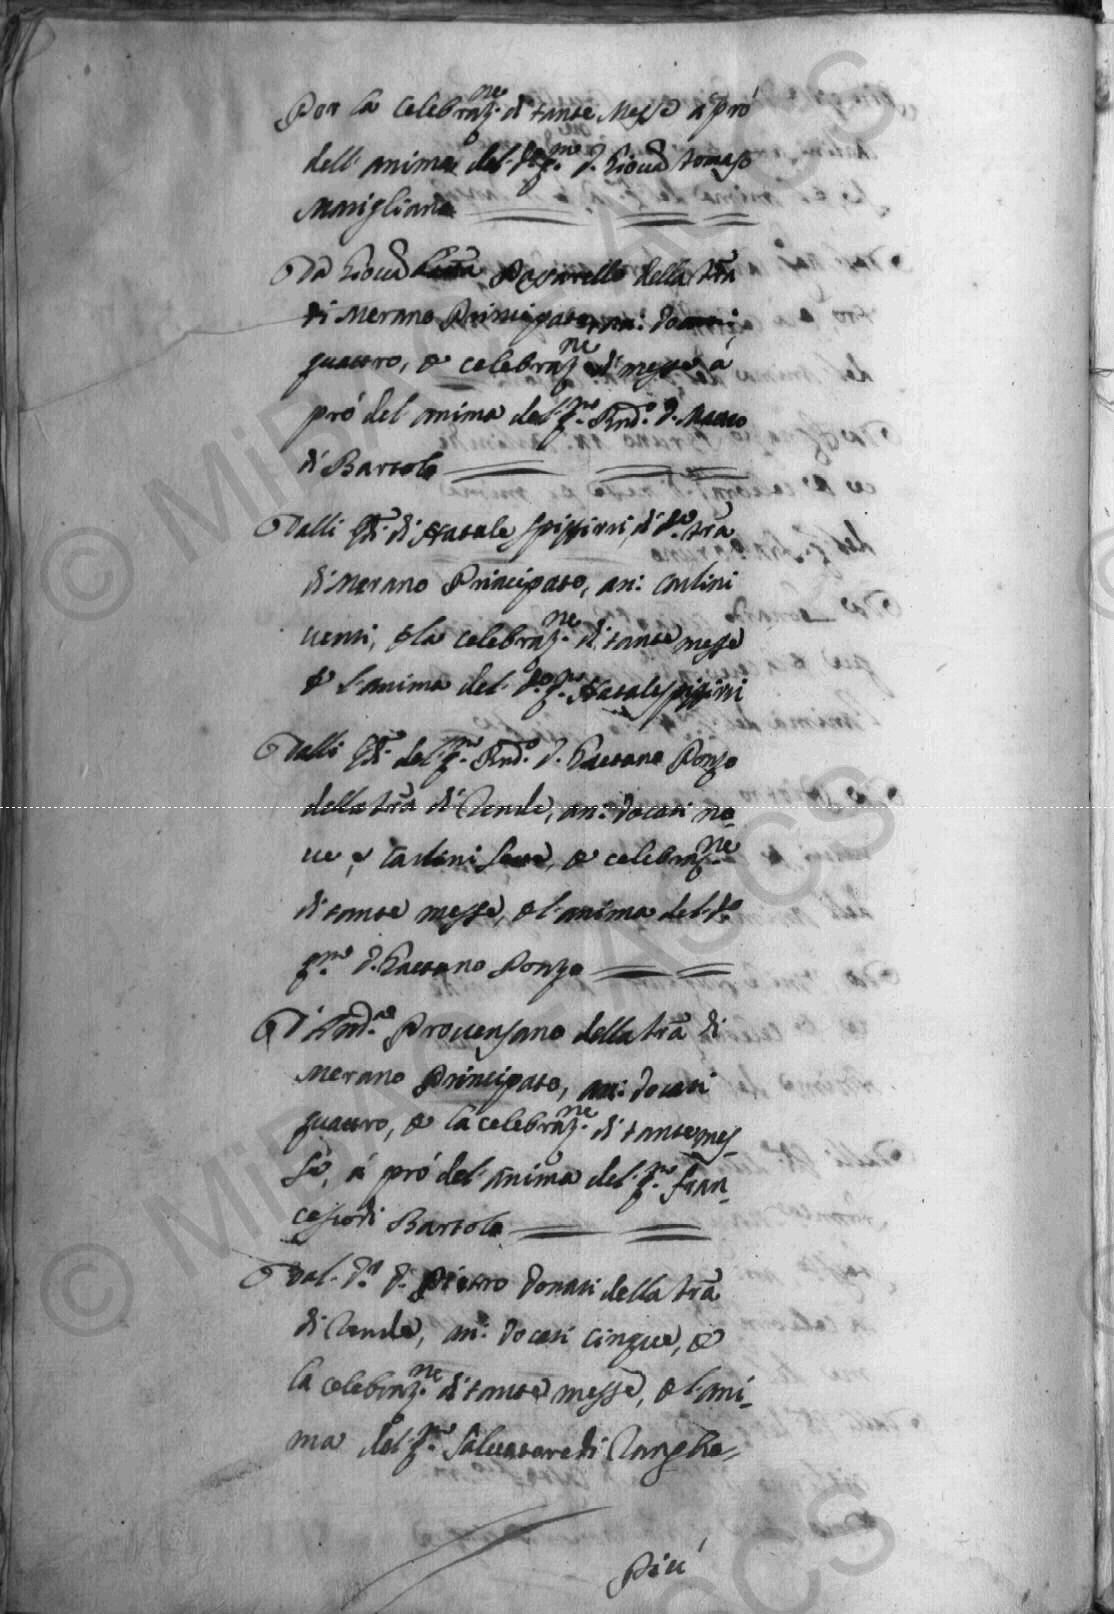 Per la celebraz.ne di tante Messe à prò
dell'anima del d.o q.m D. Giovā Tomaso
Marigliano
Da Giovā Pascarello della trā
di Merano Principato, an: docati
quattro, p celebraz.ne di messe à
prò del'anima del q.m Rnd.o D. Marco
di Bartolo
Dalli di Natale di d.a trā
di Merano Principato, an: carlini
venti, p la celebraz.ne di tante messe
p l'anima del d.o q.m Natale
Dalli del q.m Rnd.o D. Gaetano Ponzo
della trā di Rende, an: docati no-
ve, e carlini p celebraz.ne
di tante messe, p l'anima del d.o
q.m D. Gaetano Ponzo
D' And.a Provenzano della trā di
Merano Principato, an: docati
quattro, p la celebraz.ne di tante mes-
se, à prò del'anima del q.m Fran-
cesco di Bartolo
Dal D. Pietro Donati della trā
di Rende, an: docati cinque, p
la celebraz.ne di tante messe, p l'ani-
ma del q.m Salvatore di
Più
© MiBAC ASCS
© MiBAC ASCS